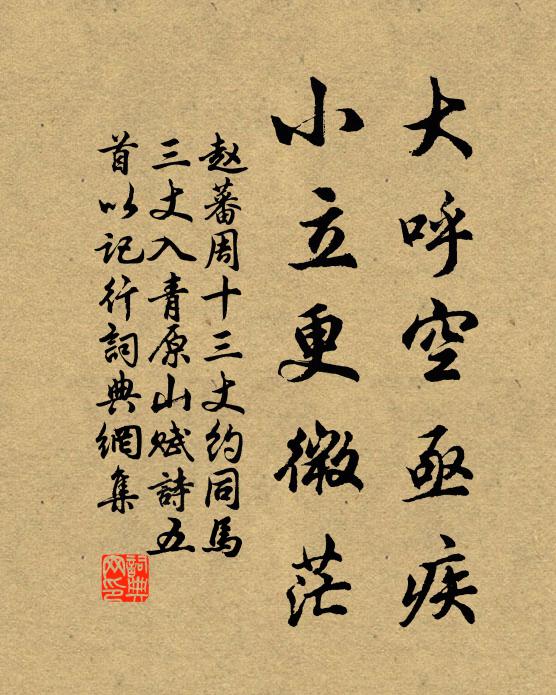 大呼空亟疾
小立更微茫
赵蕃周十三丈約同馬
三丈入青原山賦詩五
首以記行詞典網集
詞典网印